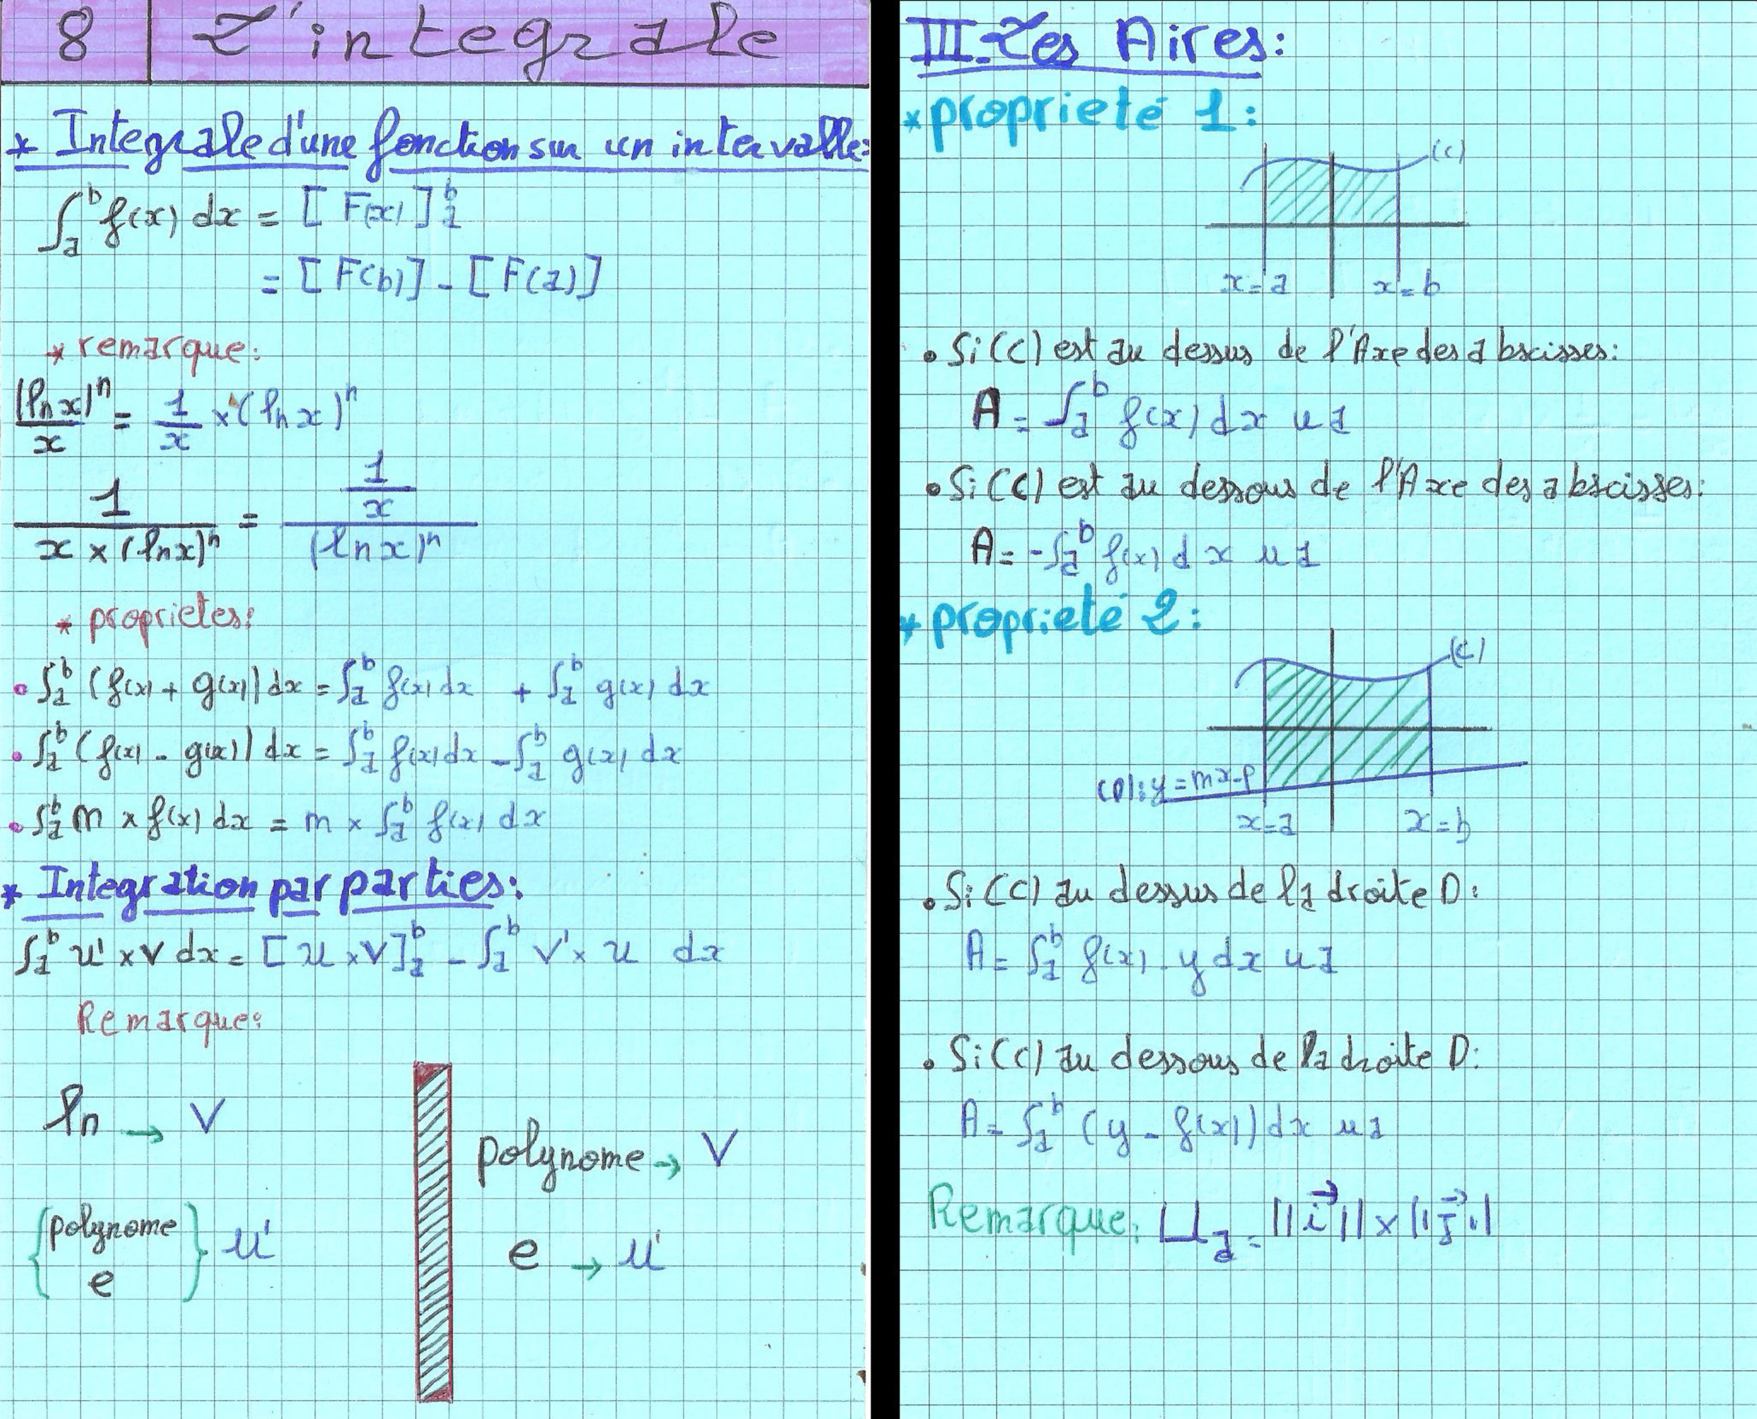 8 L'integrale
* Integrale d'une fonction sur un intervalle:
∫ₐᵇ f(x) dx = [F(x)]ₐᵇ
= [F(b)] - [F(a)]
* remarque:
(ln x)ⁿ/x = 1/x × (ln x)ⁿ
1/(x × (ln x)ⁿ) = (1/x)/(ln x)ⁿ
* proprietes:
• ∫ₐᵇ (f(x) + g(x)) dx = ∫ₐᵇ f(x) dx + ∫ₐᵇ g(x) dx
• ∫ₐᵇ (f(x) - g(x)) dx = ∫ₐᵇ f(x) dx - ∫ₐᵇ g(x) dx
• ∫ₐᵇ m × f(x) dx = m × ∫ₐᵇ f(x) dx
* Integration par parties:
∫ₐᵇ u' × V dx = [u × V]ₐᵇ - ∫ₐᵇ V' × u dx
Remarque:
ln → V
{polynome
e} u'
polynome → V
e → u'
III-Les Aires:
* proprieté 1:
(c)
x=a x=b
• Si (C) est au dessus de l'Axe des abscisses:
A = ∫ₐᵇ f(x) dx ua
• Si (C) est au dessous de l'Axe des abscisses:
A = -∫ₐᵇ f(x) dx ua
* proprieté 2:
(c)
(D): y = mx-p
x=a x=b
• Si (C) au dessus de la droite D:
A = ∫ₐᵇ f(x) - y dx ua
• Si (C) au dessous de la droite D:
A = ∫ₐᵇ (y - f(x)) dx ua
Remarque: Ua = ||i⃗|| × ||j⃗||